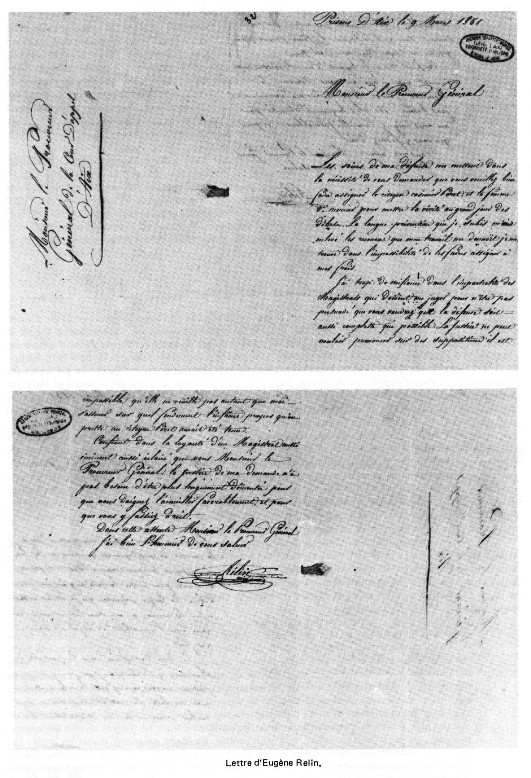 Prison d'Aix le 9 Mars 1861
Monsieur le Procureur Général
Les soins de ma défense me mettent dans
la nécessité de vous demander que vous veuillez bien
faire assigner le citoyen et la femme
pour mettre la vérité au grand jour des
débats. La longue prévention que je subis
les que mon travail me me
trouve dans l'impossibilité de les faire assigner à
mes frais
J'ai trop de confiance dans l'impartialité des
Magistrats qui doivent me juger pour n'être pas
persuadé qui vous voudrez que la défense soit
aussi complète que possible. La justice ne peut
vouloir prononcer sur des suppositions il est
Monsieur le Procureur
Général de la Cour d'appel
D'Aix
impossible qu'elle ne veuille pas autant que moi
s'assurer sur quel fondement l'infâme propos qu'on
au citoyen avait été tenu
Confiant dans la loyauté d'un Magistrat
aussi éclairé que vous Monsieur le
Procureur Général, la justice de ma demande n'a
pas besoin d'être plus longuement démontrée pour
que vous daigniez l'accueillir favorablement, et pour
que vous y fassiez droit.
Dans cette attente Monsieur le Procureur Général
J'ai bien l'honneur de vous saluer
Relin
Lettre d'Eugène Relin.